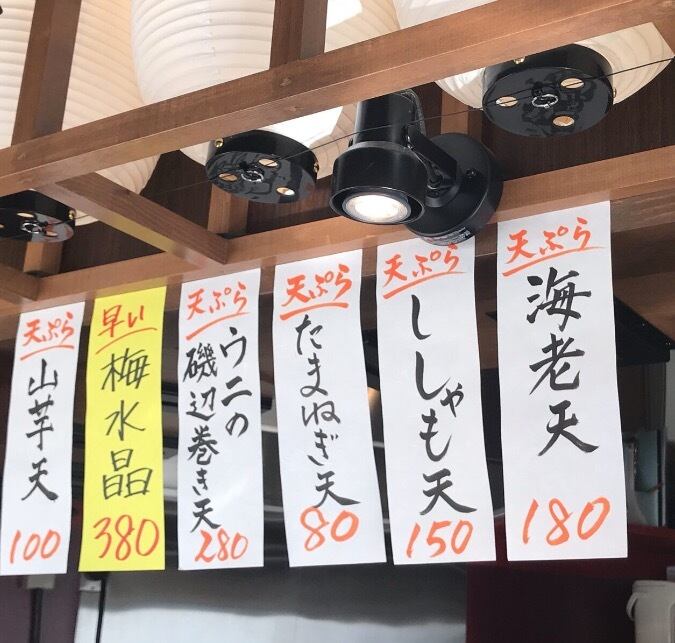 天ぷら
海老天
180
天ぷら
ししゃも天
150
天ぷら
たまねぎ天
80
天ぷら
ウニの
磯辺巻き天
280
早い
梅水晶
380
天ぷら
山芋天
100